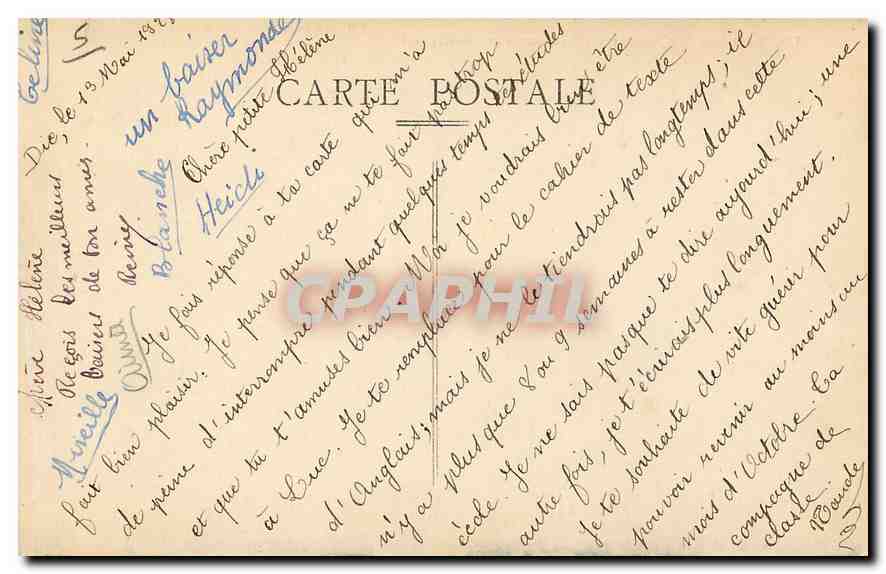 CARTE POSTALE
Die, le 13 Mai
Chère petite Hélène
Je fais réponse à ta carte qui m'a
fait bien plaisir. Je pense que ça ne te fait pas trop
de peine d'interrompre pendant quelques temps tes études
et que tu t'amuses bien. Moi je voudrais bien être
à Luc. Je te remplace pour le cahier de texte
d'Anglais; mais je ne le tiendrais pas longtemps; il
n'y a plus que 8 ou 9 semaines à rester dans cette
école. Je ne sais pas que te dire aujourd'hui; une
autre fois, je t'écrirais plus longuement.
Je te souhaite de vite guérir pour
pouvoir revenir au moins au
mois d'Octobre. Ta
compagne de
classe.
un baiser
Raymonde
Blanche
Heidi
Hélène
Reçois les meilleurs
baisers de ton amie.
Reine
Mireille
CPAPHIL